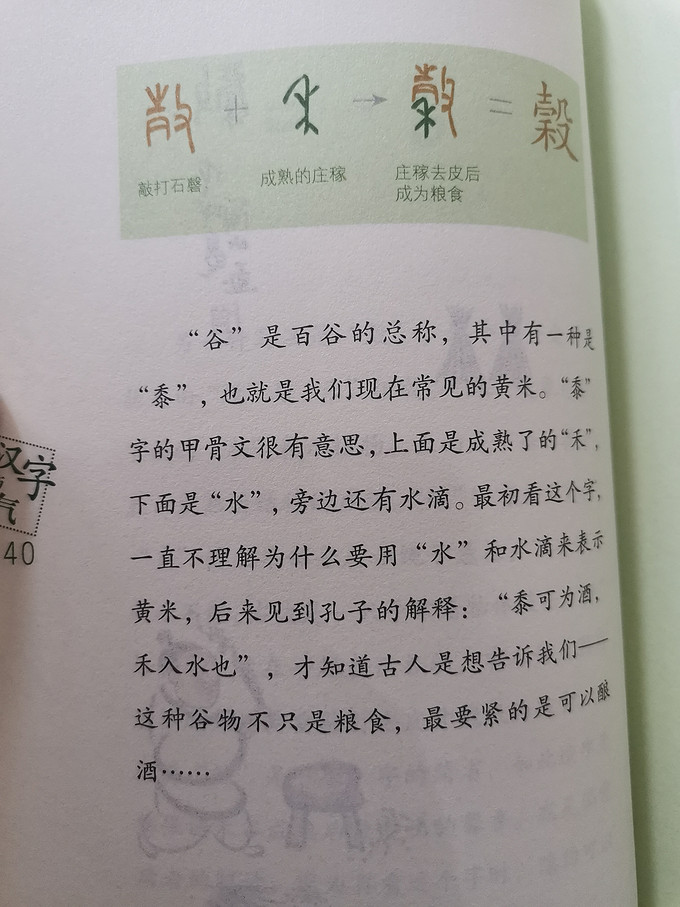 + → = 穀
敲打石磬
成熟的庄稼
庄稼去皮后
成为粮食
“谷”是百谷的总称，其中有一种是
“黍”，也就是我们现在常见的黄米。“黍”
字的甲骨文很有意思，上面是成熟了的“禾”，
下面是“水”，旁边还有水滴。最初看这个字，
一直不理解为什么要用“水”和水滴来表示
黄米，后来见到孔子的解释：“黍可为酒，
禾入水也”，才知道古人是想告诉我们——
这种谷物不只是粮食，最要紧的是可以酿
酒……
汉字
气
40